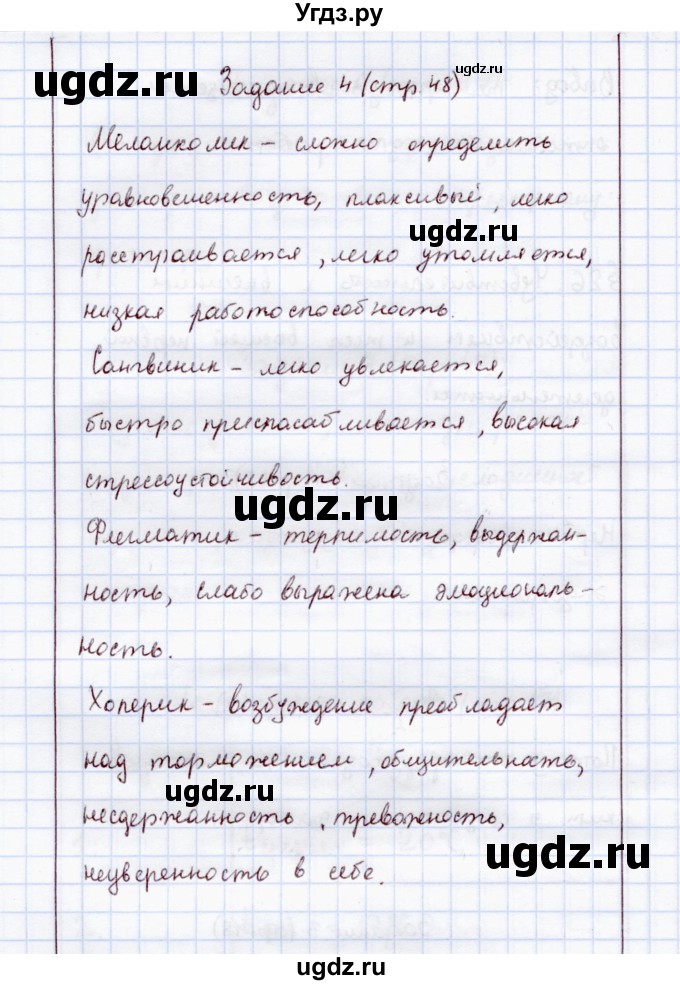 Угдз.ру
ugdz.ru
ugdz.ru
Задание 4 (стр. 48)
Меланхолик – сложно определить
уравновешенность, плаксивый, легко
ugdz.ru
расстраивается, легко утомляется,
низкая работоспособность.
Сангвиник – легко увлекается,
быстро приспосабливается, высокая
стрессоустойчивость.
ugdz.ru
Флегматик – терпимость, выдержан-
ность, слабо выражена эмоциональ-
ность.
Холерик – возбуждение преобладает
над торможением, общительность,
ugdz.ru
несдержанность, тревожность,
ugdz.ru
неуверенность в себе.
ugdz.ru